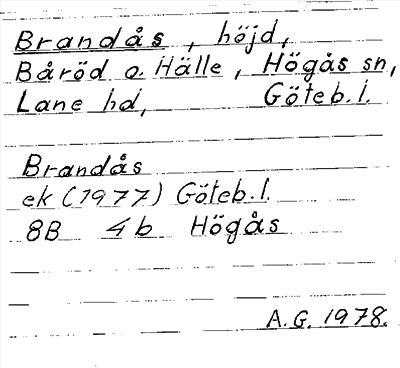 Brandås, höjd,
Båröd o. Hälle, Högås sn,
Lane hd, Göteb.l.
Brandås
ek (1977) Göteb.l.
8B 4b Högås
A.G. 1978.